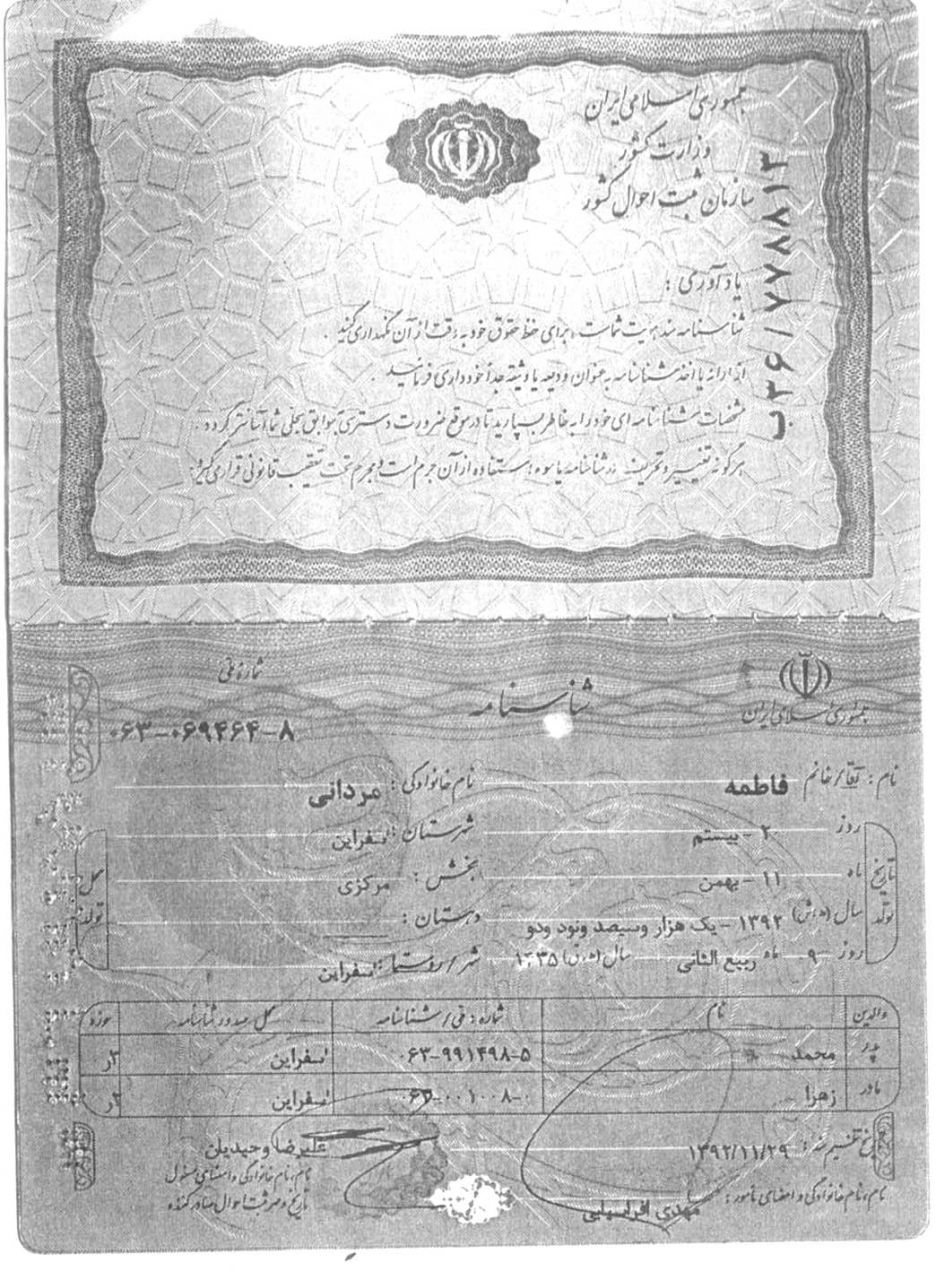 جمهوری اسلامی ایران
وزارت کشور
سازمان ثبت احوال کشور
ب۳۶/۷۷۸۸۱۳
یادآوری :
شناسنامه سند هویت شماست ، برای حفظ حقوق خود به دقت از آن نگهداری کنید .
از ارائه یا اخذ شناسنامه به عنوان ودیعه یا وثیقه جداً خودداری فرمائید .
مشخصات شناسنامه ای خود را به خاطر بسپارید تا در موقع ضرورت دسترسی به سوابق سجلی شما آسانتر گردد .
هرگونه تغییر و تحریف در شناسنامه یا سوء استفاده از آن جرم است و مجرم تحت تعقیب قانونی قرار می گیرد .
جمهوری اسلامی ایران
شناسنامه
شماره ملی
۰۶۳-۰۶۹۴۶۴-۸
نام : آقا/خانم فاطمه نام خانوادگی : مردانی
تاریخ تولد روز ۲۰ - بیستم شهرستان : اسفراین محل تولد
ماه ۱۱ - بهمن بخش : مرکزی
سال (ه.ش) ۱۳۹۲ - یک هزار وسیصد ونود ودو دهستان :
روز ۹ ماه ربیع الثانی سال (ه.ق) ۱۴۳۵ شهر/روستا : اسفراین
والدین نام شماره : ملی/شناسنامه محل صدور شناسنامه حوزه
پدر محمد ۰۶۳-۹۹۱۴۹۸-۵ اسفراین
مادر زهرا ۰۶۳-۰۰۱۰۰۸-۰ اسفراین
تاریخ تنظیم سند : ۱۳۹۲/۱۱/۲۹ علیرضا وحیدیان
نام،نام خانوادگی و امضای مامور : مهدی افراسیابی
نام،نام خانوادگی و امضای مسئول
تاریخ و مهر ثبت احوال صادرکننده